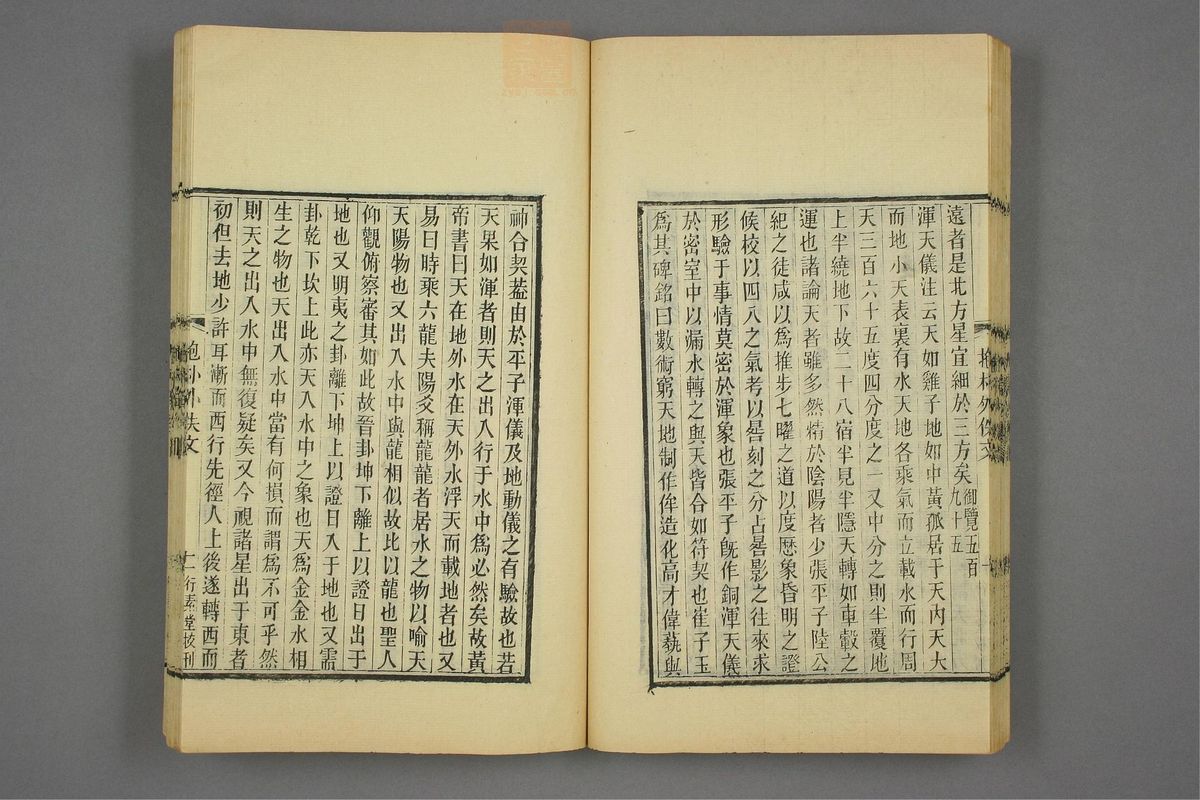 遠者是北方星宜細於三方矣御覽五百九十五
渾天儀注云天如雞子地如中黃孤居于天內天大
而地小天表裏有水天地各乘氣而立載水而行周
天三百六十五度四分度之一又中分之則半覆地
上半繞地下故二十八宿半見半隱天轉如車轂之
運也諸論天者雖多然精於陰陽者少張平子陸公
紀之徒咸以爲推步七曜之道以度歷象昏明之證
候校以四八之氣考以晷刻之分占晷影之往來求
形驗于事情莫密於渾象也張平子旣作銅渾天儀
於密室中以漏水轉之與天皆合如符契也崔子玉
爲其碑銘曰數術窮天地制作侔造化高才偉藝與
神合契葢由於平子渾儀及地動儀之有驗故也若
天杲如渾者則天之出入行于水中爲必然矣故黃
帝書曰天在地外水在天外水浮天而載地者也又
易曰時乘六龍夫陽爻稱龍龍者居水之物以喻天
天陽物也又出入水中與龍相似故比以龍也聖人
仰觀俯察審其如此故晉卦坤下離上以證日出于
地也又明夷之卦離下坤上以證日入于地也又需
卦乾下坎上此亦天入水中之象也天爲金金水相
生之物也天出入水中當有何損而謂爲不可乎然
則天之出入水中無復疑矣又今視諸星出于東者
初但去地少許耳漸而西行先徑人上後遂轉西而
外佚文
行素堂校刊